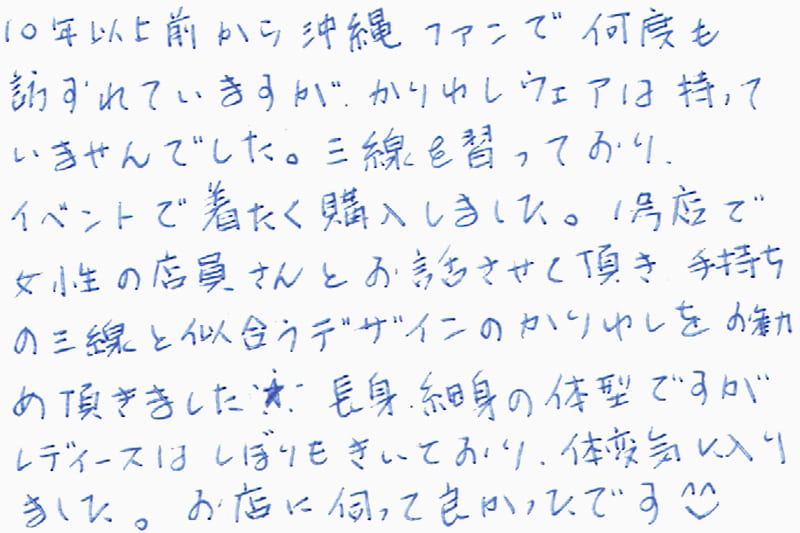 10年以上前から沖縄ファンで何度も
訪ずれていますが、かりゆしウェアは持って
いませんでした。三線を習っており、
イベントで着たく購入しました。1号店で
女性の店員さんとお話させて頂き、手持ち
の三線と似合うデザインのかりゆしをお勧
め頂きました★ 長身、細身の体型ですが
レディースはしぼりもきいており、体変気に入り
ました。お店に伺って良かったです^^